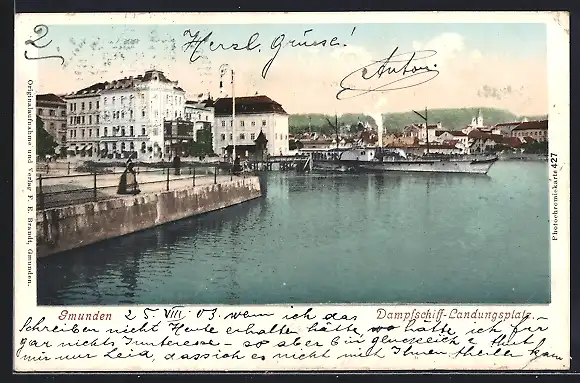 2
Herzl. Grüsse!
Anton.
Originalaufnahme und Verlag F. E. Brandt, Gmunden.
Photochromiekarte 427
Gmunden
Dampfschiff-Landungsplatz.
25. VIII. 03. wenn ich das
Schreiben nicht Heute erhalte hätte hätte ich für
gar nichts Innteresse - so aber bin ich glücklich thut
mir nur Leid, dass ich es nicht mit Ihnen theilen kann